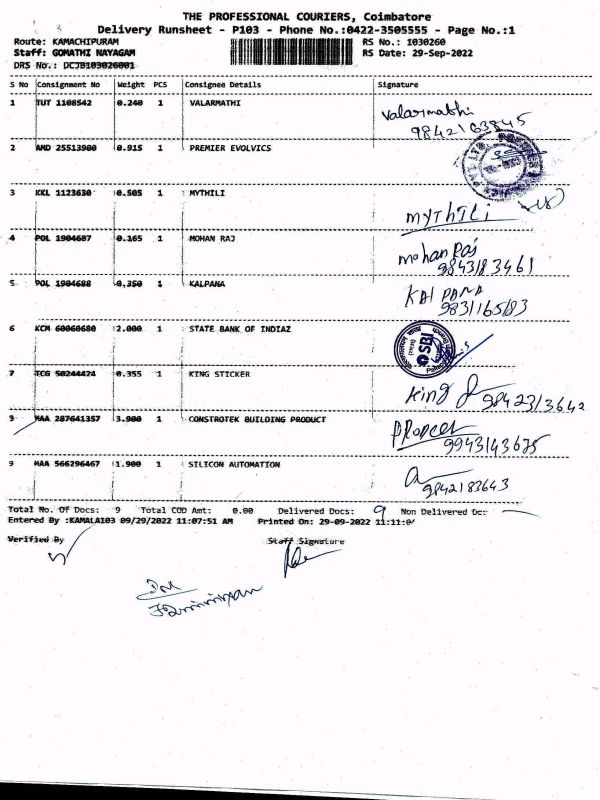 THE PROFESSIONAL COURIERS, Coimbatore
Delivery Runsheet - P103 - Phone No.:0422-3505555 - Page No.:1
Route: KAMACHIPURAM RS No.: 1030260
Staff: GOMATHI NAYAGAM RS Date: 29-Sep-2022
DRS No.: DCJB103026001
S No Consignment No Weight PCS Consignee Details Signature
1 TUT 1108542 0.240 1 VALARMATHI
Valarmathi
9842163845
2 AMD 25513900 0.915 1 PREMIER EVOLVICS
3 KKL 1123630 0.505 1 MYTHILI
MYTHILI
4 POL 1904687 0.165 1 MOHAN RAJ
mohan Raj
9843183461
5 POL 1904688 0.350 1 KALPANA
KAlPANA
9831165183
6 KCM 60060680 2.000 1 STATE BANK OF INDIAZ
SBI
7 TCG 50244424 0.355 1 KING STICKER
King 9842313642
9 MAA 287641357 3.900 1 CONSTROTEK BUILDING PRODUCT
9943143675
9 MAA 566296467 1.900 1 SILICON AUTOMATION
9842183643
Total No. Of Docs: 9 Total COD Amt: 0.00 Delivered Docs: 9 Non Delivered Dc:
Entered By :KAMALA103 09/29/2022 11:07:51 AM Printed On: 29-09-2022 11:11:0
Verified By Staff Signature